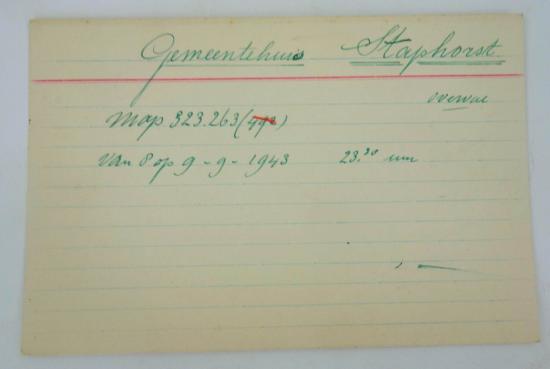 Gemeentehuis Staphorst
overval
Map 323.263 (492)
Van 8 op 9-9-1943 23.30 uur